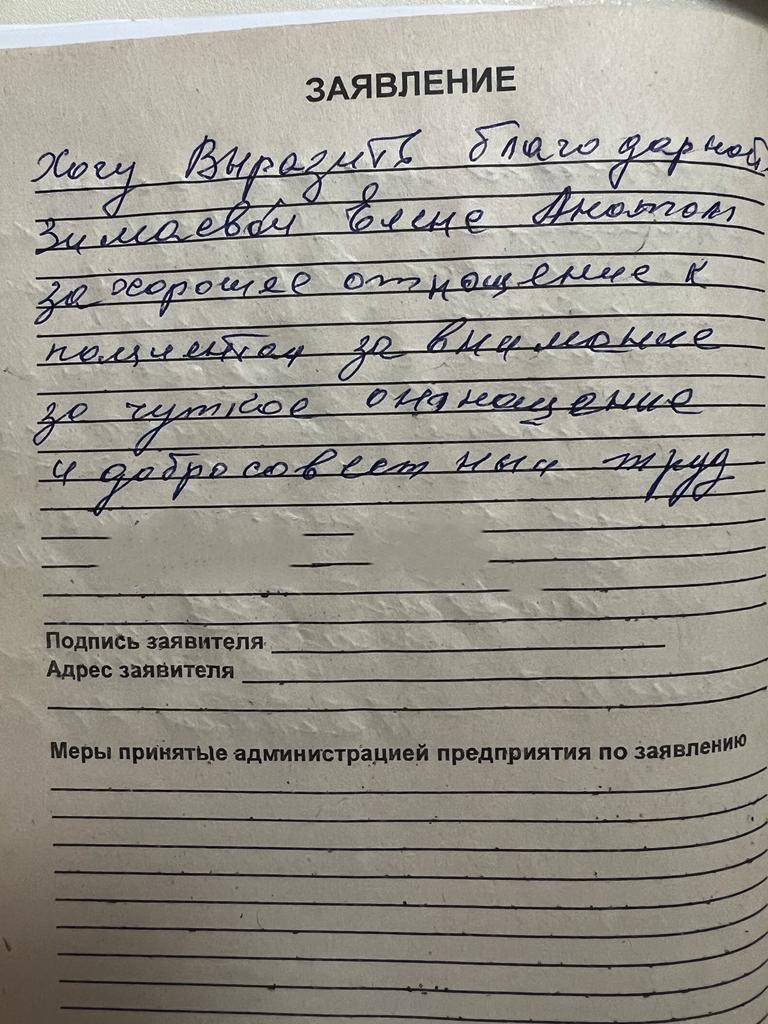 ЗАЯВЛЕНИЕ
Хочу Выразить благодарной
Зимаевой Елене Анатол
за хорошее отнощение к
за внимание
за чуткое
и добросовестный труд
Подпись заявителя
Адрес заявителя
Меры принятые администрацией предприятия по заявлению